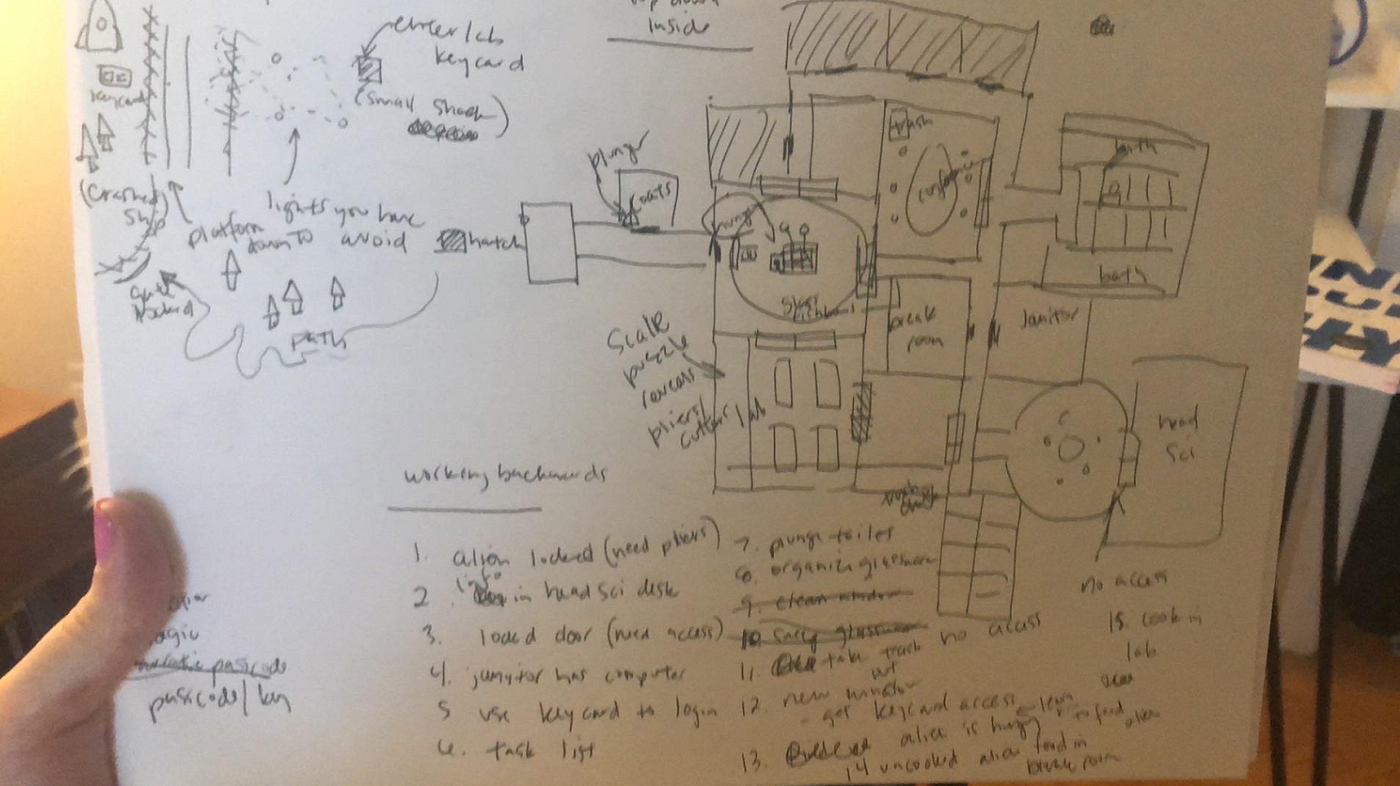 top down
inside
center lab
keycard
(small shack
)
keycard
(Crashed
ship
platform
down to
lights you have
avoid
hatch
path
plunger
coats
trash
conference
bath
bath
break
room
Janitor
head
sci
Scale
puzzle
reveals
pliers/
cutter lab
no access
no access
working backwards
1. alien locked (need pliers)
2. info in head sci desk
3. locked door (need access)
4. janitor has computer
5 use key card to login
6. task list
7. plunge toilet
8. organize glassware
9. clean window
10. glassware
11. take trash
out
12. new monitor
- get keycard access
13. alien is hungry
to feed
alien
14 uncooked alien food in
break room
15. cook in
lab
logic
passcode
passcode/key